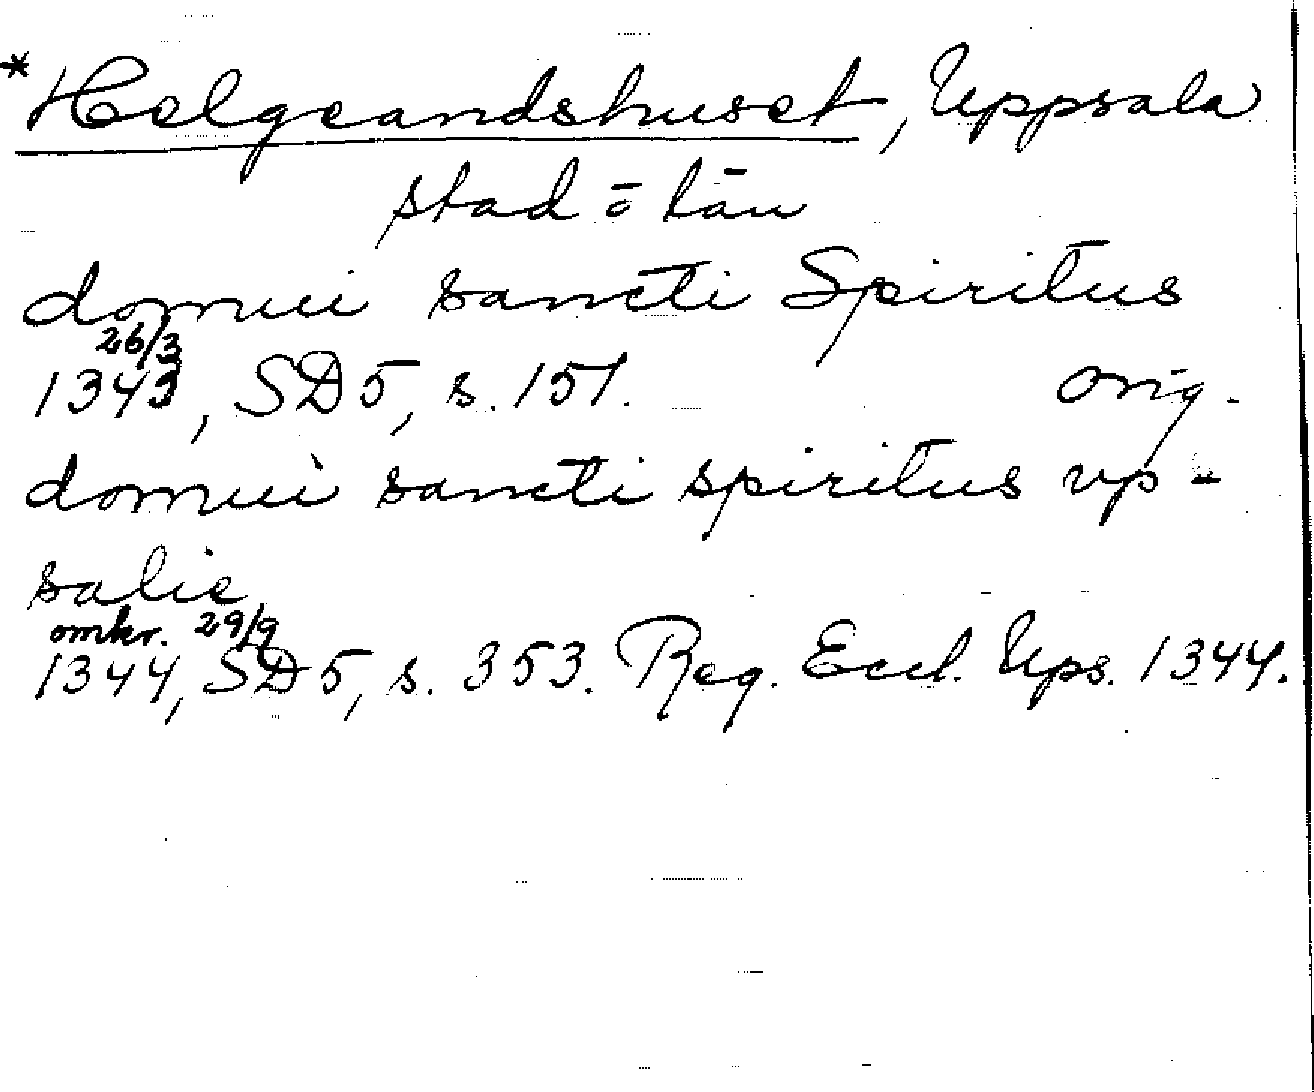 *Helgeandshuset, Uppsala
stad o län
domui sancti Spiritus
26/3
1343, SD 5, s. 151. Orig.
domui sancti spiritus vp-
salie
omkr. 29/9
1344, SD 5, s. 353. Reg. Eccl. Ups. 1344.